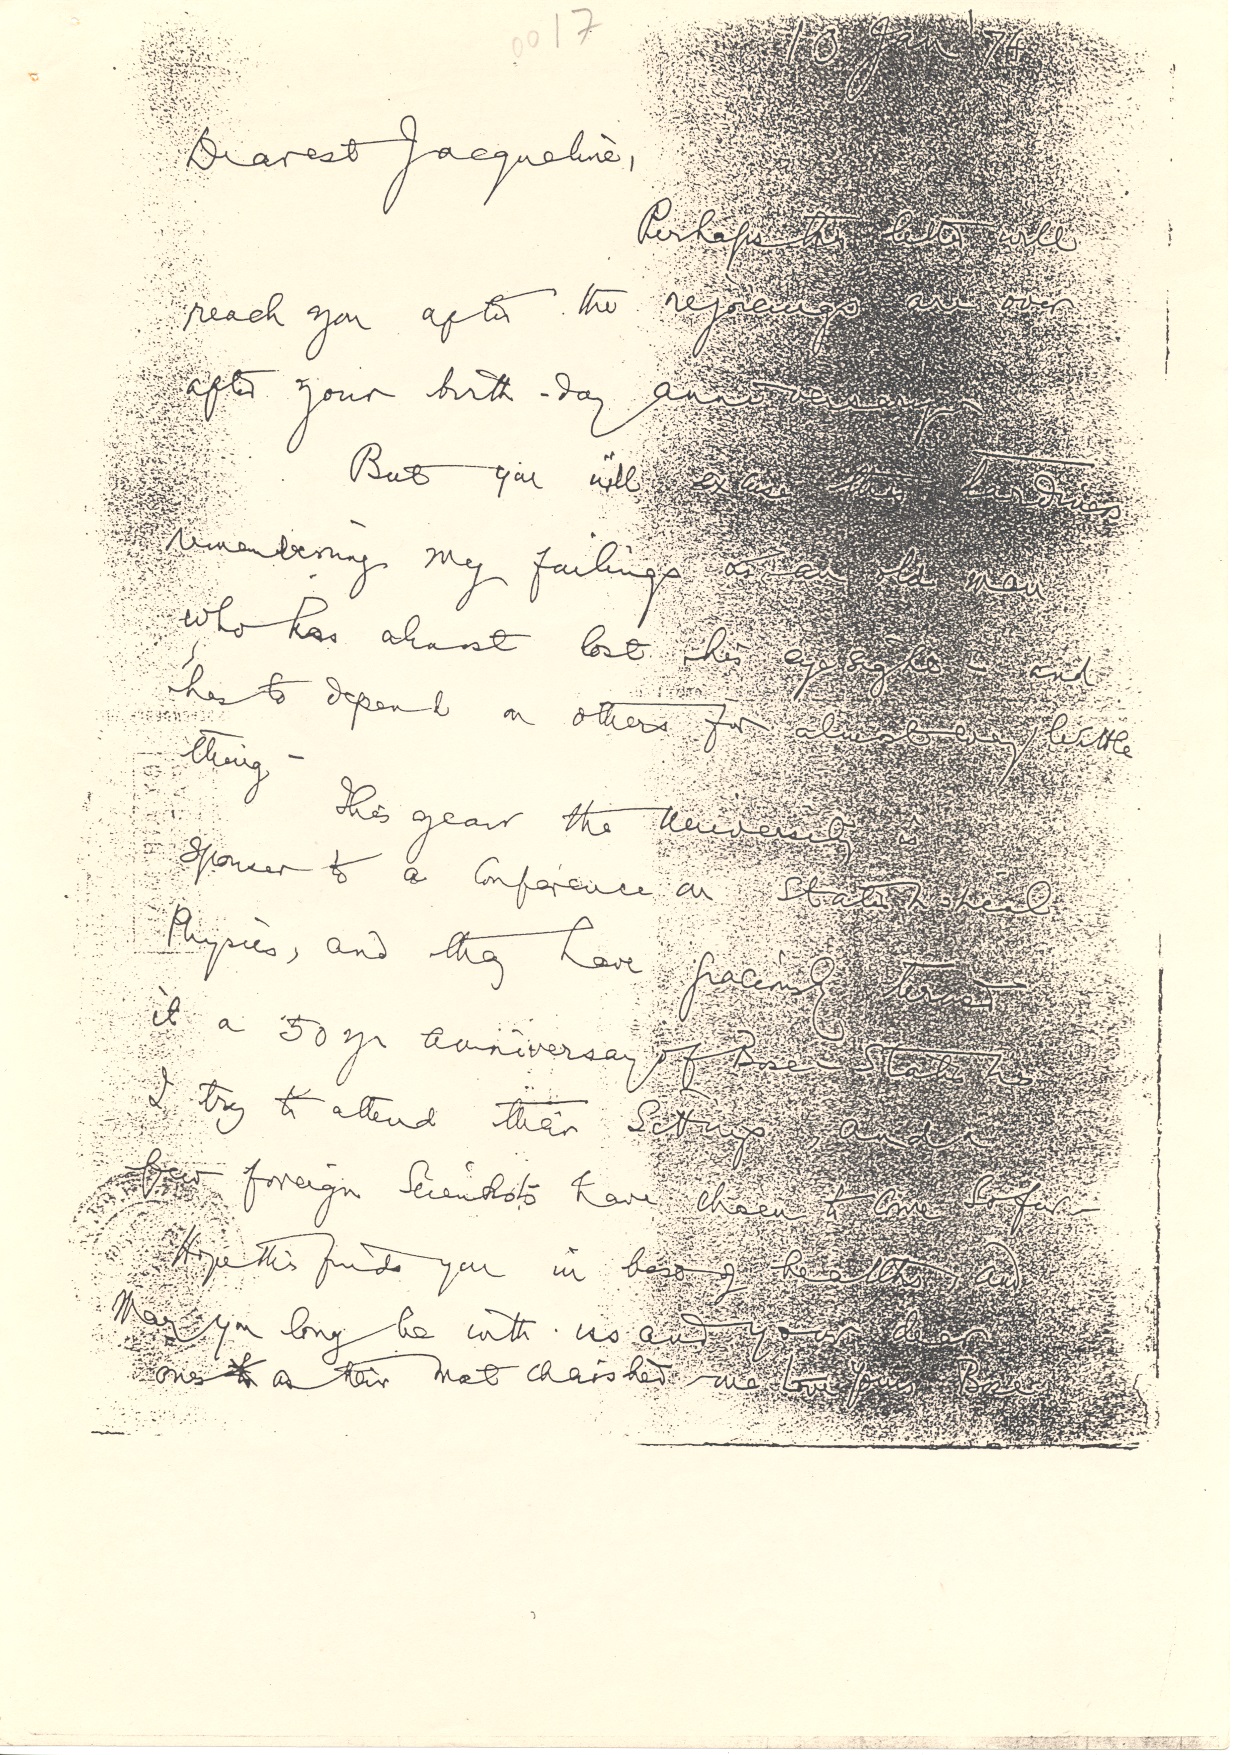 0017
10 Jan '74
Dearest Jacqueline,
Perhaps this letter will
reach you after the rejoicings are over
after your birth-day anniversary
But you will excuse this tardiness
remembering my failings as an old man
who has almost lost his eyesight - and
has to depend on others for almost every little
thing -
This year the University is
sponser to a Conference on Statistical
Physics, and they have graciously termed
it a 50 yr anniversary of Bose Statistics
I try to attend their Sittings, and a
few foreign Scientists have chosen to come so far -
Hope this finds you in best of health, and
May you long be with us and your dear
ones as their most cherished one Love yours Bose